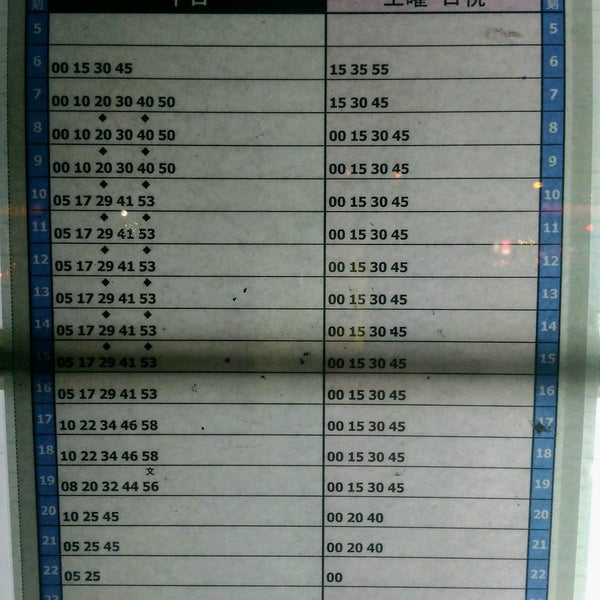 刻 平日 土曜・日祝 刻
5 5
6 00 15 30 45 15 35 55 6
7 00 10 20 30 40 50 15 30 45 7
◆ ◆
8 00 10 20 30 40 50 00 15 30 45 8
◆ ◆
9 00 10 20 30 40 50 00 15 30 45 9
◆ ◆
10 05 17 29 41 53 00 15 30 45 10
◆ ◆
11 05 17 29 41 53 00 15 30 45 11
◆ ◆
12 05 17 29 41 53 00 15 30 45 12
◆ ◆
13 05 17 29 41 53 00 15 30 45 13
◆ ◆
14 05 17 29 41 53 00 15 30 45 14
◆ ◆
15 05 17 29 41 53 00 15 30 45 15
16 05 17 29 41 53 00 15 30 45 16
17 10 22 34 46 58 00 15 30 45 17
18 10 22 34 46 58 00 15 30 45 18
文
19 08 20 32 44 56 00 15 30 45 19
20 10 25 45 00 20 40 20
21 05 25 45 00 20 40 21
22 05 25 00 22